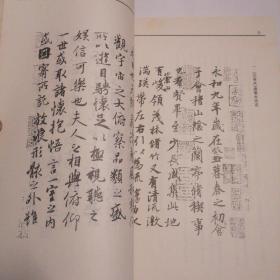 永和九年歲在癸丑暮春之初會
于會稽山陰之蘭亭脩禊事
也羣賢畢至少長咸集此地
有崇山峻領茂林脩竹又有清流激
湍暎帶左右引
觀宇宙之大俯察品類之盛
所以遊目騁懷足以極視聽之
娛信可樂也夫人之相與俯仰
一世或取諸懷抱悟言一室之內
或因寄所託放浪形骸之外雖